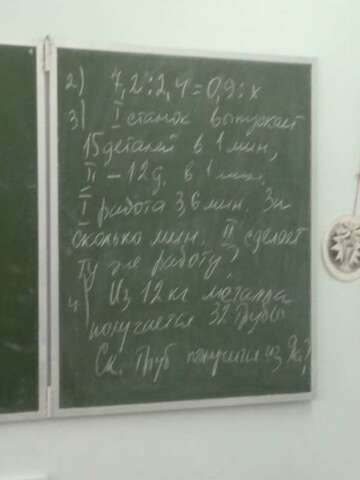 2) 7,2:2,4=0,9:x
3) I станок выпускает
15 деталей в 1 мин,
II – 12 д. в 1 мин.
I работа 3,6 мин. За
сколько мин. II сделает
ту же работу?
4) Из 12 кг металла
получается 32 трубы
Ск. труб получится из 9 кг?